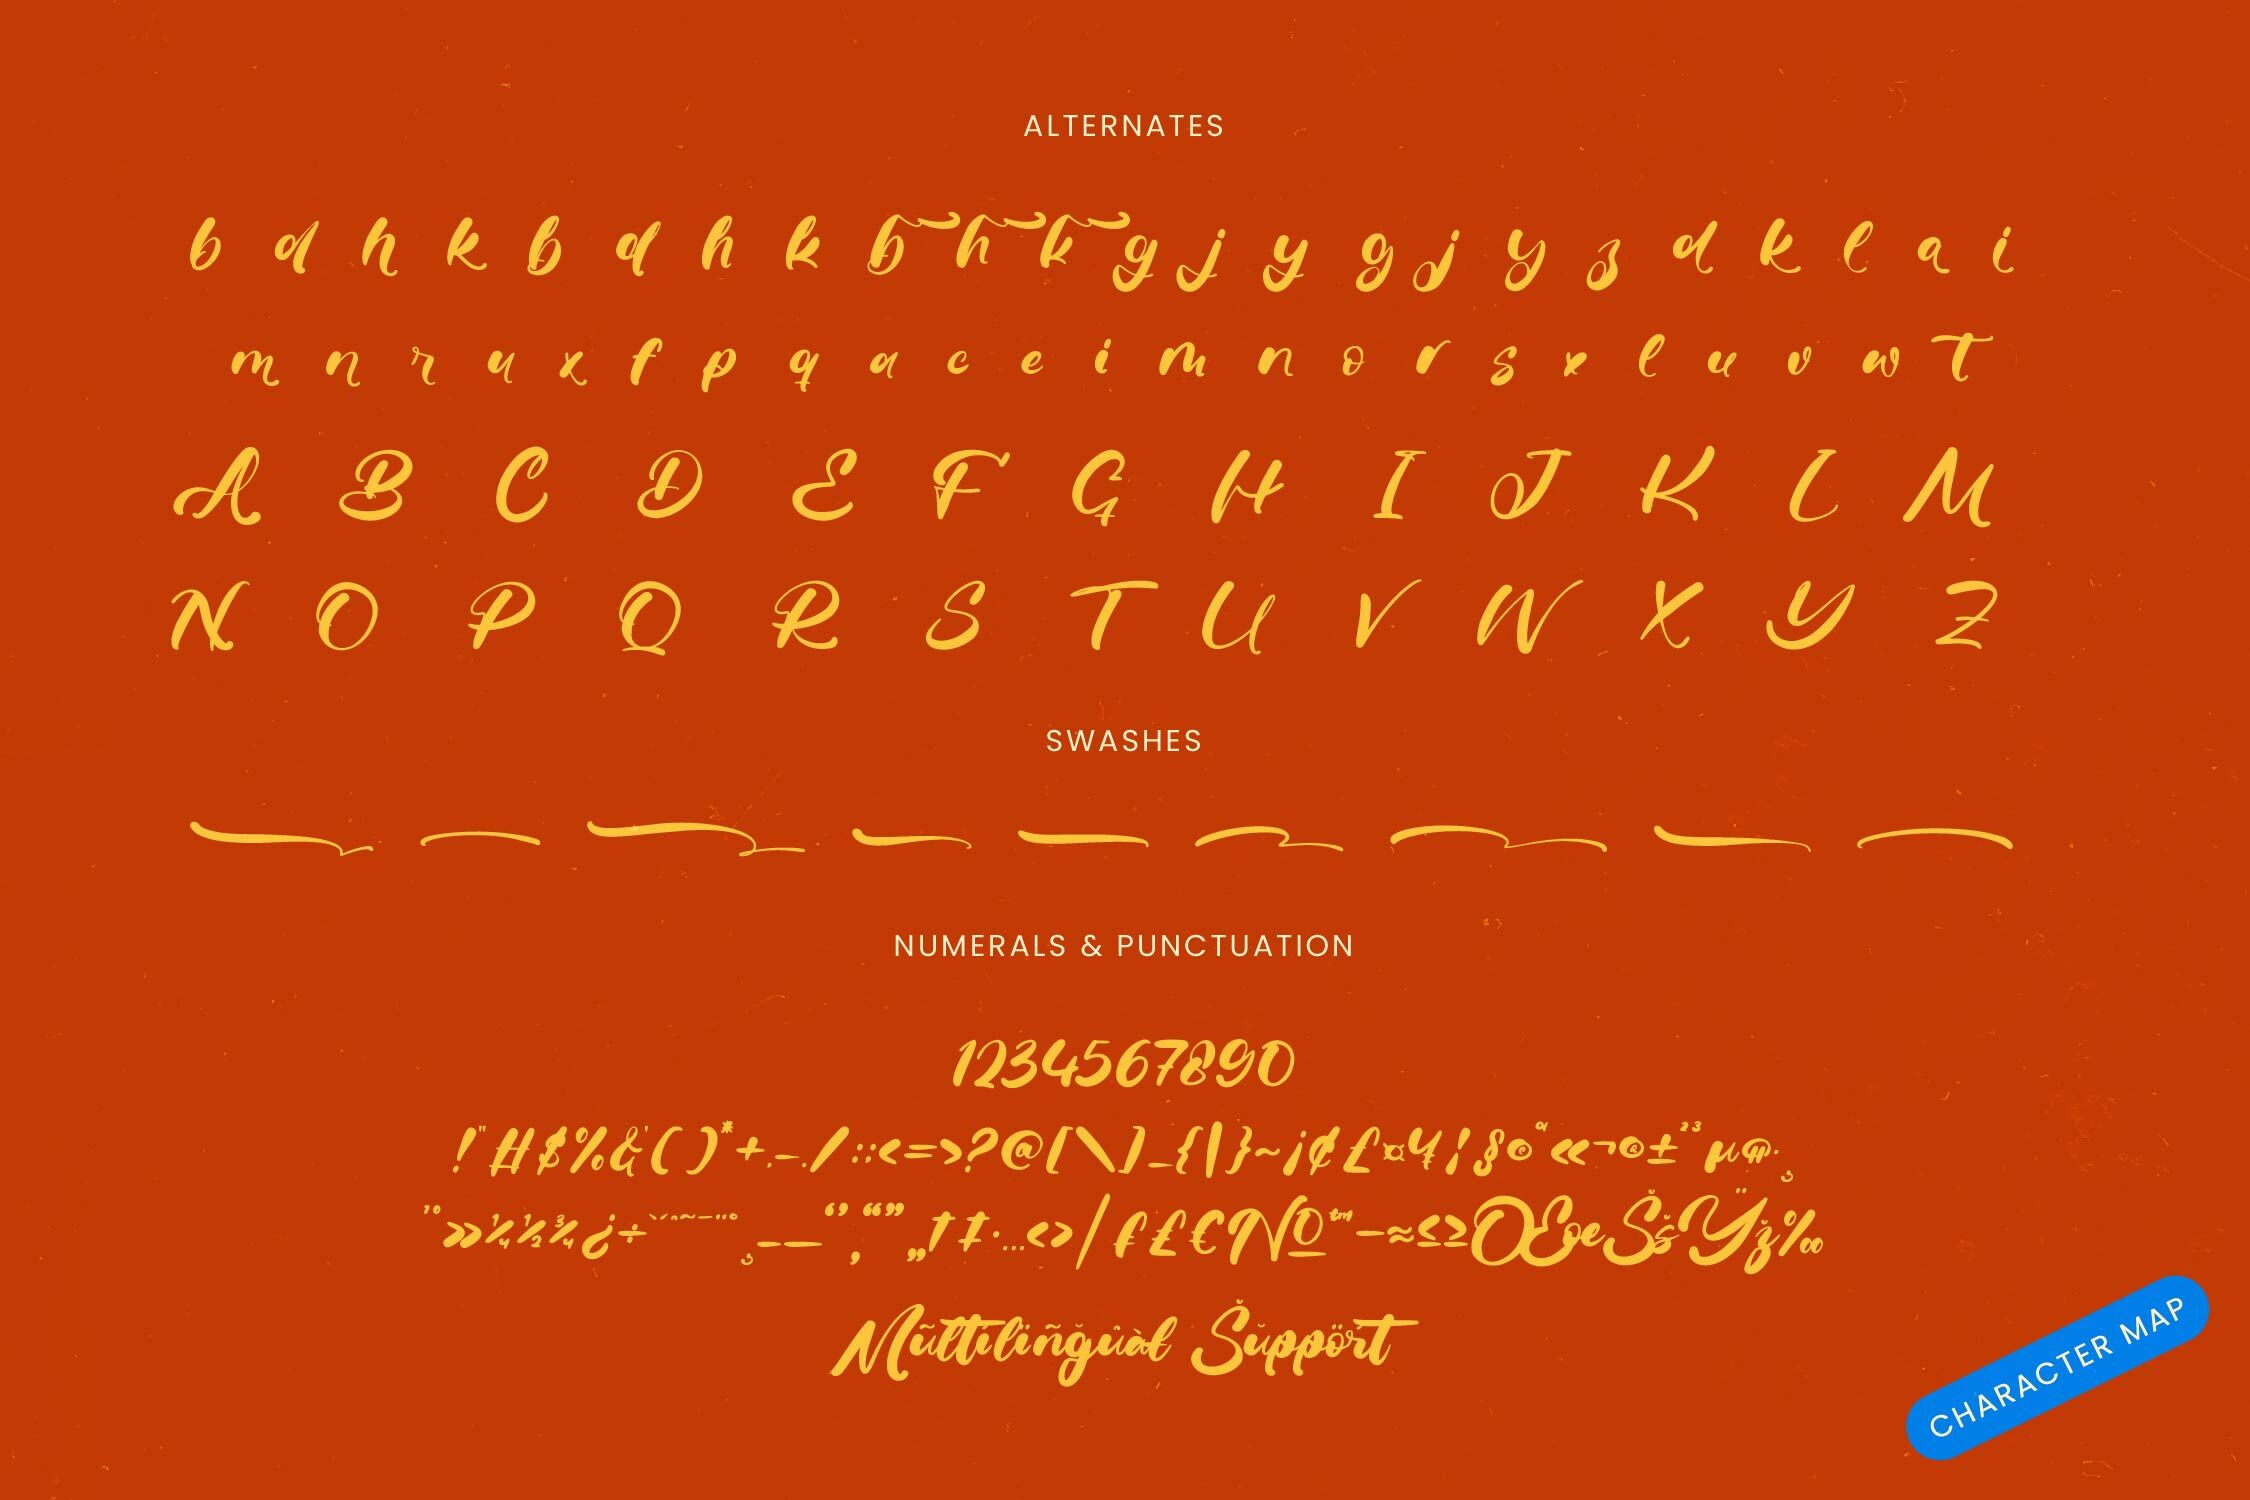 ALTERNATES
b d h k b d h k b h k g j y g j y z d k l a i
m n r u x f p q a c e i m n o r s x l u v w t
A B C D E F G H I J K L M
N O P Q R S T U V W X Y Z
SWASHES
NUMERALS & PUNCTUATION
1234567890
!"#$%&'()*+,-./:;<=>?@[\]_{|}~¡¢£¤¥¦§©ª«¬®±²³µ¶·¸
¹º»¼½¾¿÷ˋˇˆ˜¯˘¨˚¸–—‘’‚“”„†‡•…‹›⁄₣₤€№™−≈≤≥ŒœŠšŸž‰
Mũltílïñğûàł Šŭppört
CHARACTER MAP